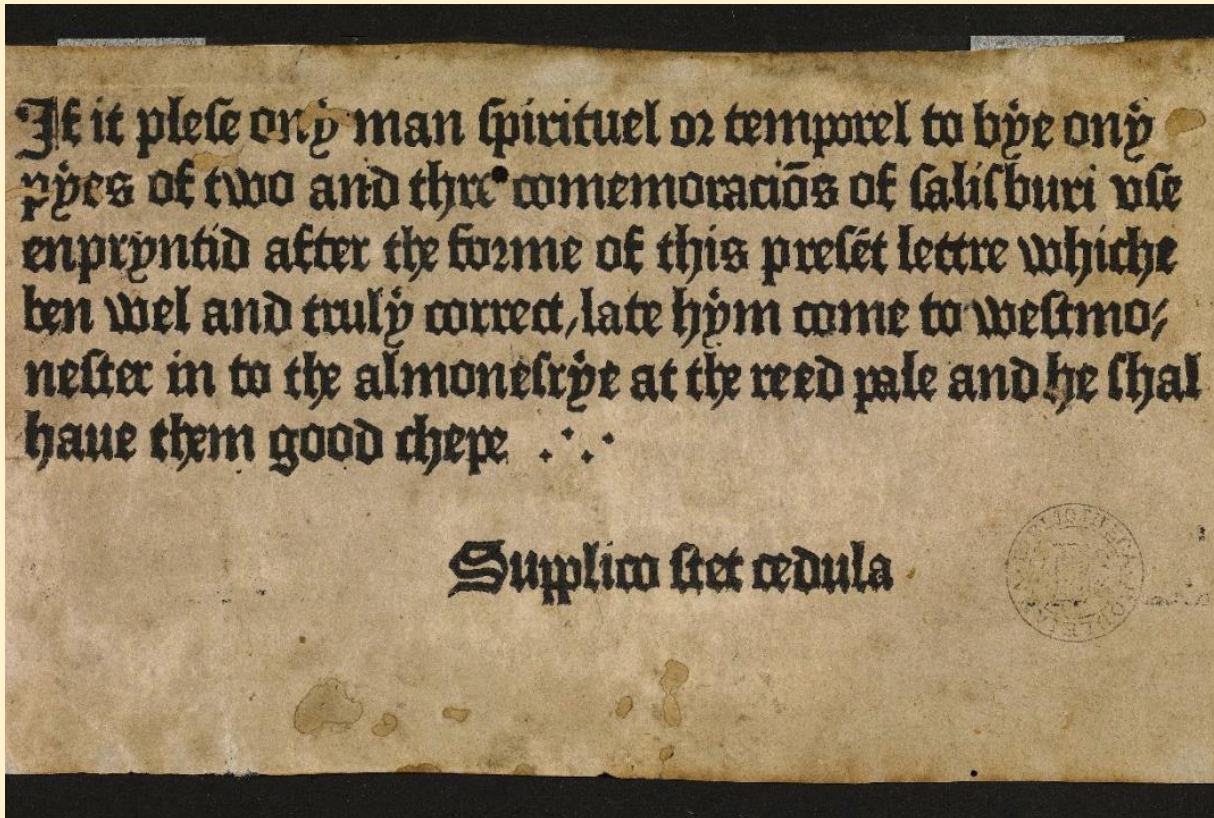 If it plese ony man spirituel or temporel to bye ony
pyes of two and thre comemoraciõs of salisburi vse
enpryntid after the forme of this presẽt lettre whiche
ben wel and truly correct, late hym come to westmo⸗
nester in to the almonesrye at the reed pale and he shal
haue them good chepe ∴
Supplico stet cedula